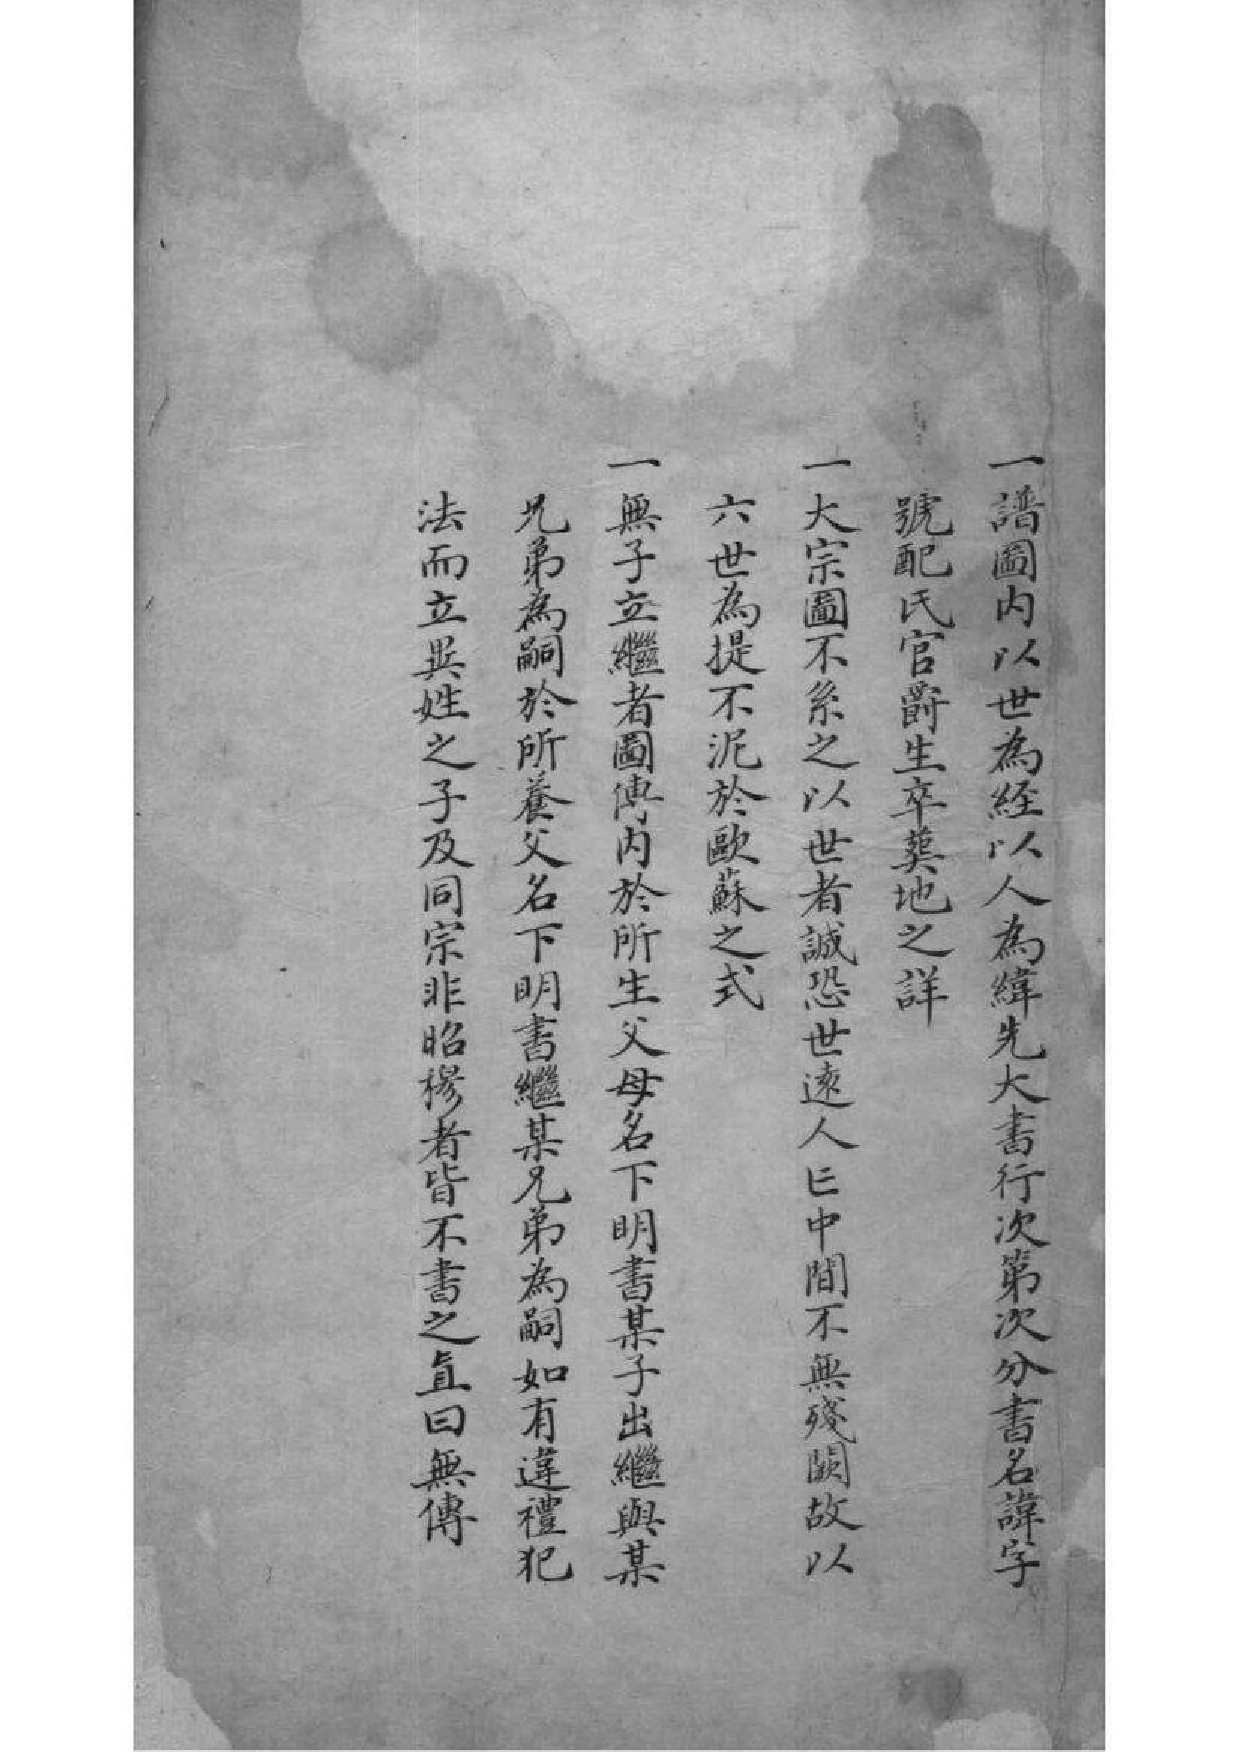 一譜圖内以世為經以人為緯先大書行次第次分書名諱字
號配氏官爵生卒葬地之詳
一大宗圖不系之以世者誠恐世逺人亡中間不無殘闕故以
六世為提不泥於歐蘇之式
一無子立繼者圖傳内於所生父母名下明書某子出繼與某
兄弟為嗣於所養父名下明書繼某兄弟為嗣如有違禮犯
法而立異姓之子及同宗非昭穆者皆不書之直曰無傳